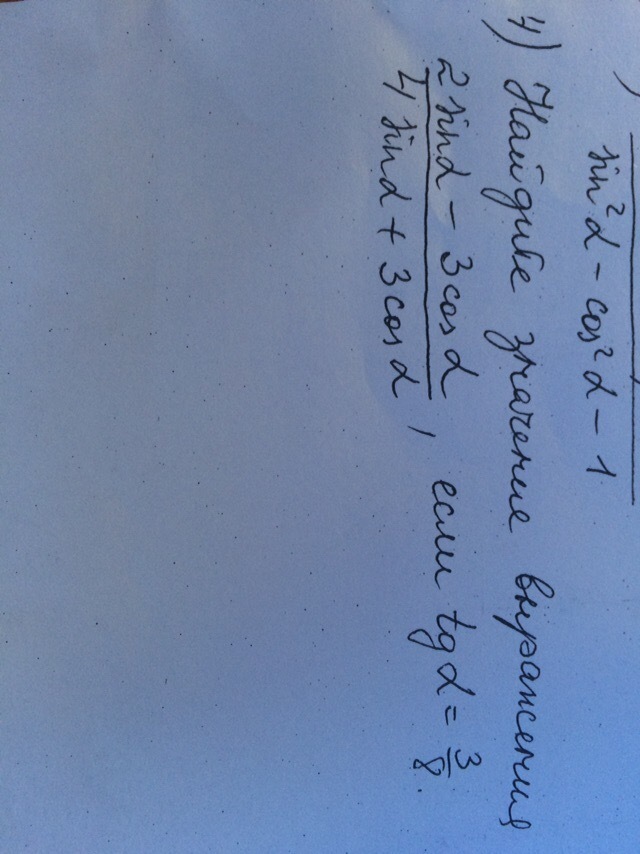 )
sin²α - cos²α - 1
4) Найдите значение выражения
2 sinα - 3 cosα
4 sinα + 3 cosα , если tg α = 3/8.